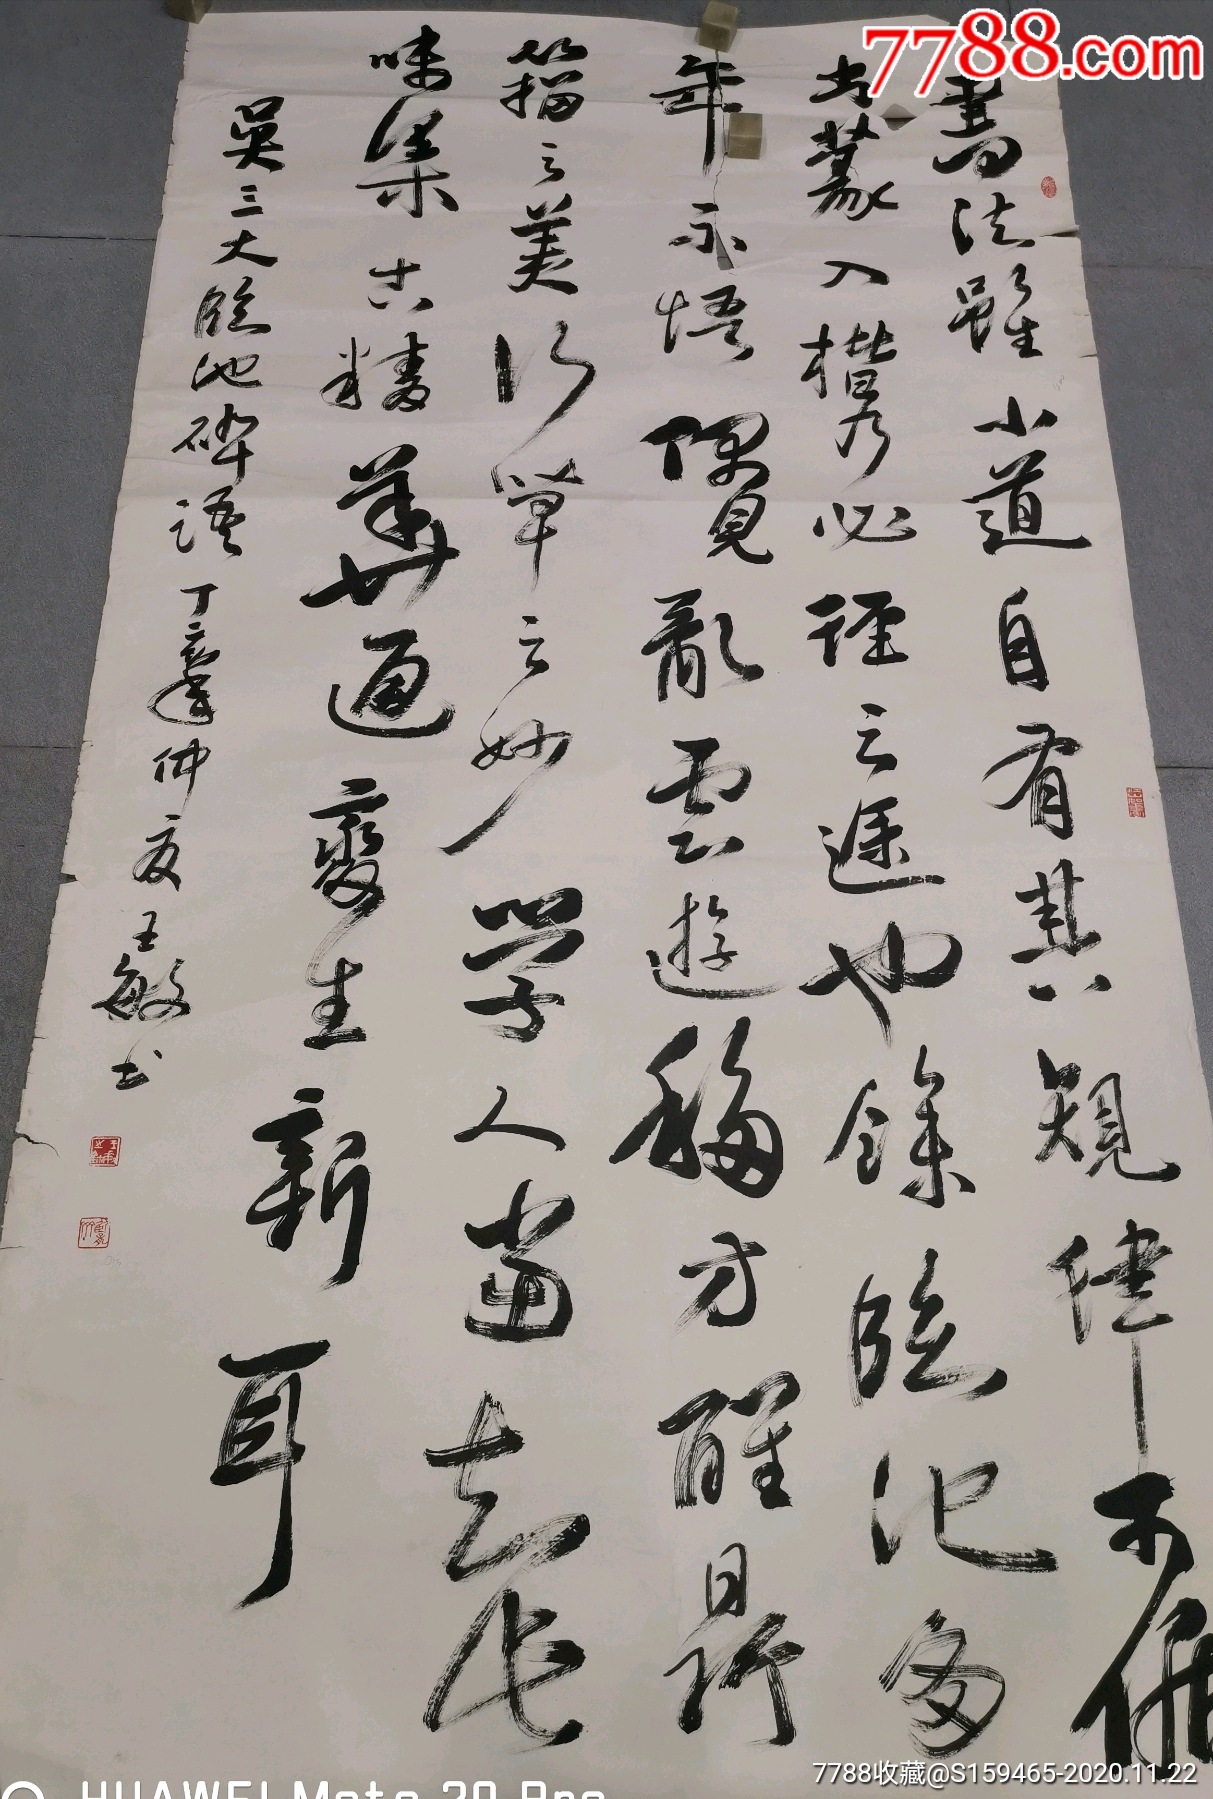 7788.com
書法雖小道自有其規律不俱
出篆入楷乃必經之途也餘臨池多
年不悟偶見亂雲遊移方醒鼎
籀之美行草之妙學人當去
味集古精華通變生新耳
吳三大臨池碎語丁亥年仲夏王敏書
7788收藏@S159465-2020.11.22
HUAWEI Mate 20 Pro